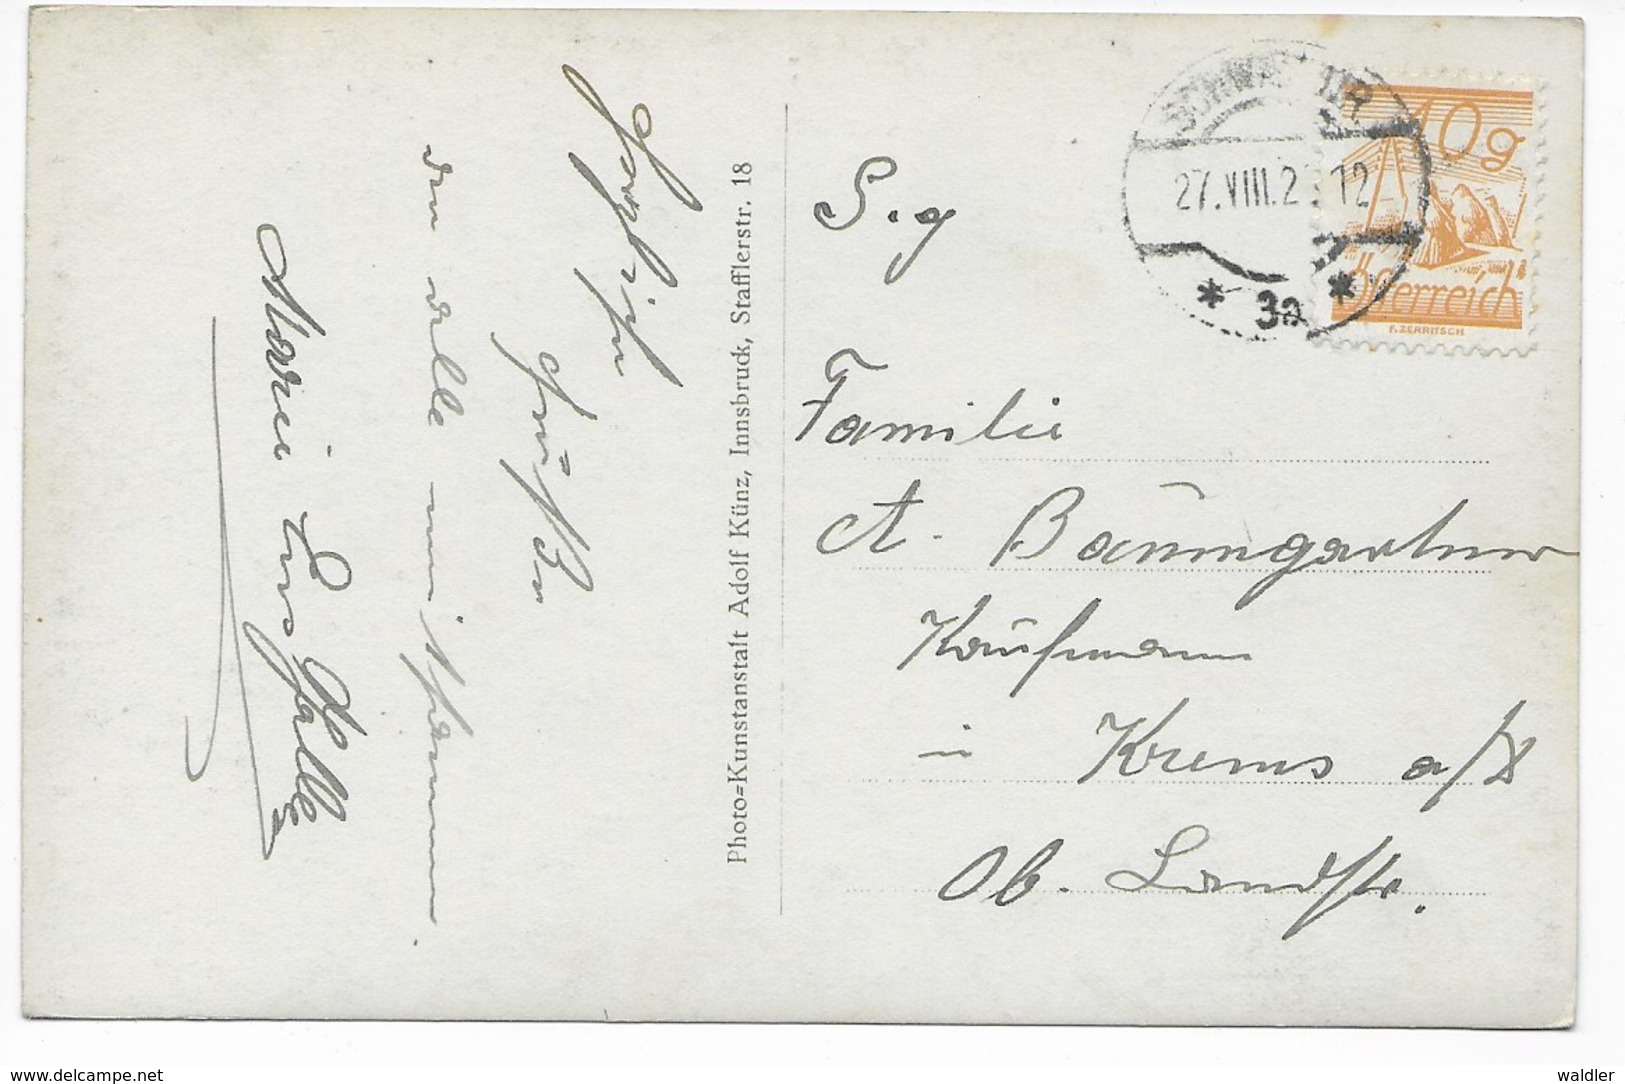 Herzlichen
Grüßen
an alle
Marie
Photo=Kunstanstalt Adolf Künz, Innsbruck, Stafflerstr. 18
27.VIII.2 12
* 3a *
10g
Österreich
F. ZERRITSCH
S. g
Familie
A. Baumgartner
Kaufmann
in Krems a/D
Ob. Landstr.
www.delcampe.net
waldler